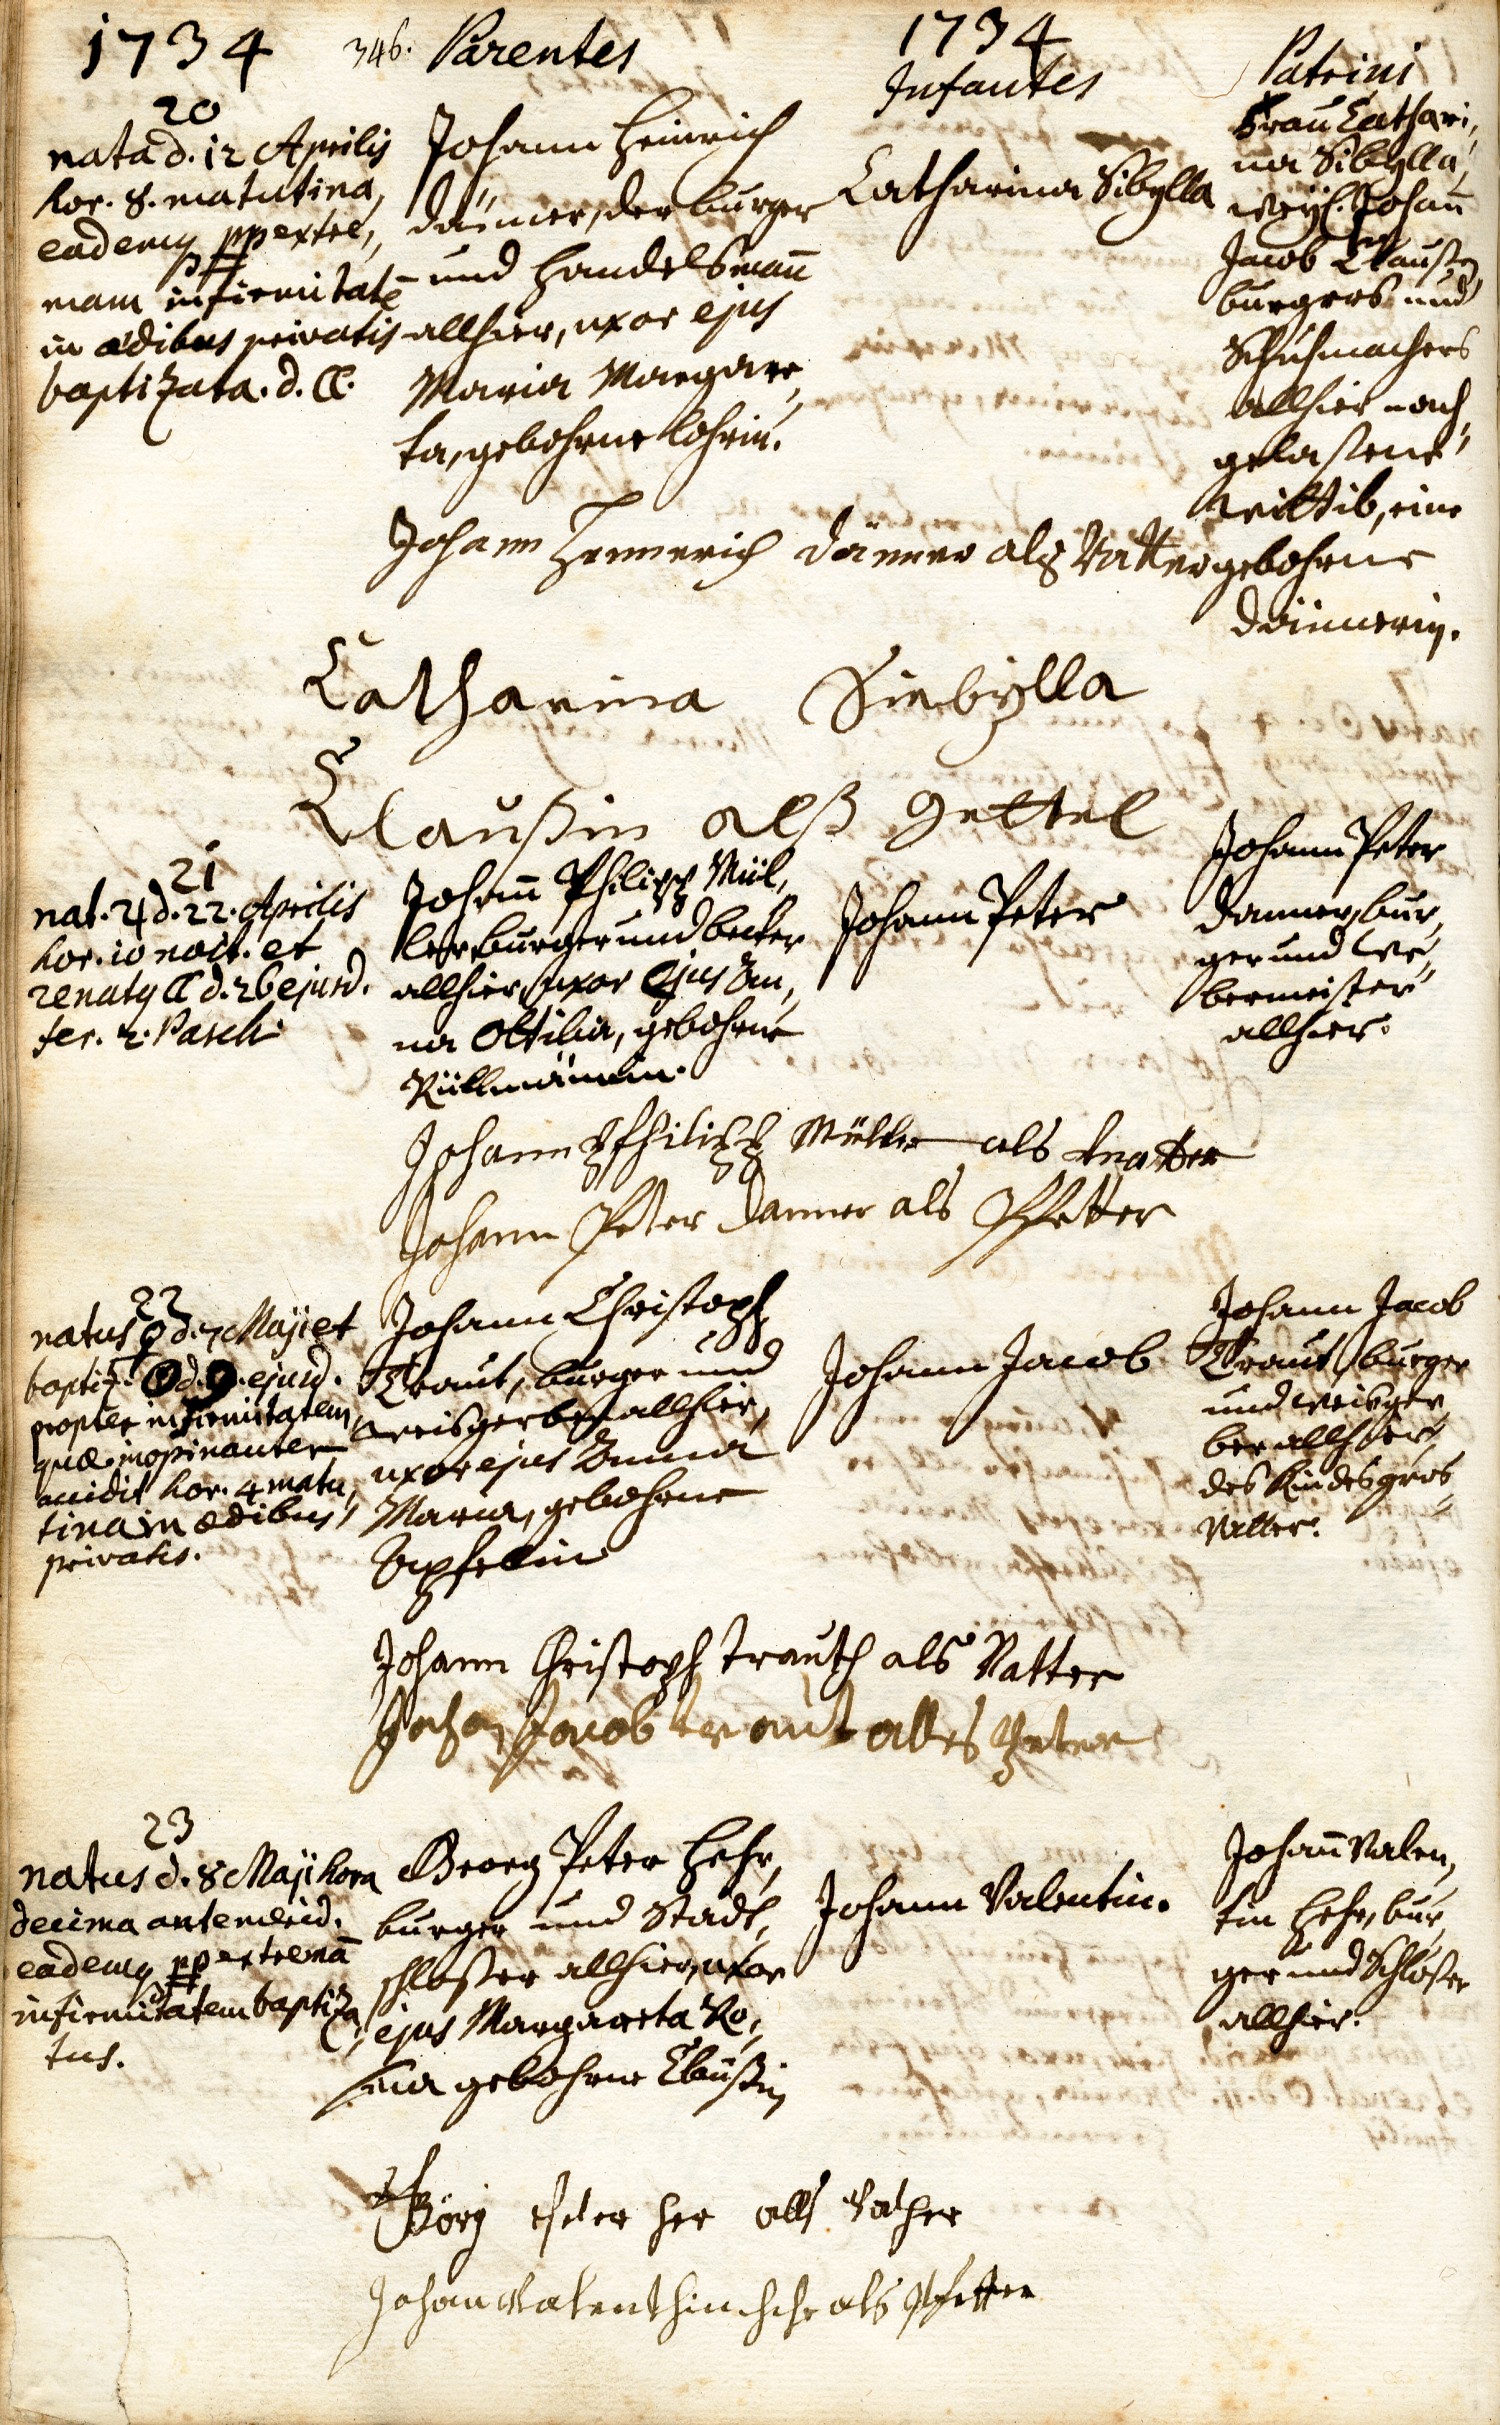 1734
346.
Parentes
1734
Infantes
Patrini
20
nata d. 12 Aprilis
hor. 8. matutina,
eademq ppextre,
mam infirmitatē
in ædibus privatis
baptizata. d. ☾.
Johann Heinrich
däñer, der burger
und handelsmañ
allhier, uxor ejus
Maria Margare,
ta, gebohrne Lohrin.
Catharina Sibylla
Frau Cathari,
na Sibylla,
weyl. Johañ
Jacob Clausen
burgers und
Schuhmachers
allhier nach,
gelaßene
Wittib, eine
gebohrne
däñnerin.
Johann Hennerich dänner als Vatter
Catharina Siebÿlla
Claußin alß Gettel
21
nat. ♃ d. 22. Aprilis
hor. 10 noct. et
renatq ☾ d. 26 ejusd.
fer. 2. Pasch.
Johañ Philipp Mül,
ler, burger und becker
allhier, uxor ejus An,
na Ottilia, gebohrne
Küllmännin.
Johann Peter
Johann Peter
Danner, bur,
ger und We,
bermeister
allhier.
Johann Philipp Müller als Vatter
Johann Peter Danner als Pfetter
22
natus ♀ d. 7 Maji et
baptiz. ☉ d. 9. ejusd.
propter infirmitatem
quæ inopinanter
accidit hor. 4 matu,
tina in ædibus
privatis.
Johann Christoph
Traut, burger und
weisgerber allhier,
uxor ejus Anna
Maria, gebohrne
Apfelin
Johann Jacob
Johann Jacob
Traut, burger
und weisger,
ber allhier,
des Kindes gros
Vatter.
Johann Christoph Trauth als Vatter
Johan Jacob traut alles Peter
23
natus d. 8 Maji hora
decima antemerid.
eademq pp extremā
infirmitatem baptiza,
tus.
Georg Peter Hehr,
burger und Stadt,
schloßer allhier, uxor
ejus Margareta Ro,
sina gebohrne Claußin
Johann Valentin.
Johañ Valen,
tin Hehr, bur,
ger und Schloßer
allhier.
Görg Peter her alls Vather
Johan Valenthin hehr als Pfetter